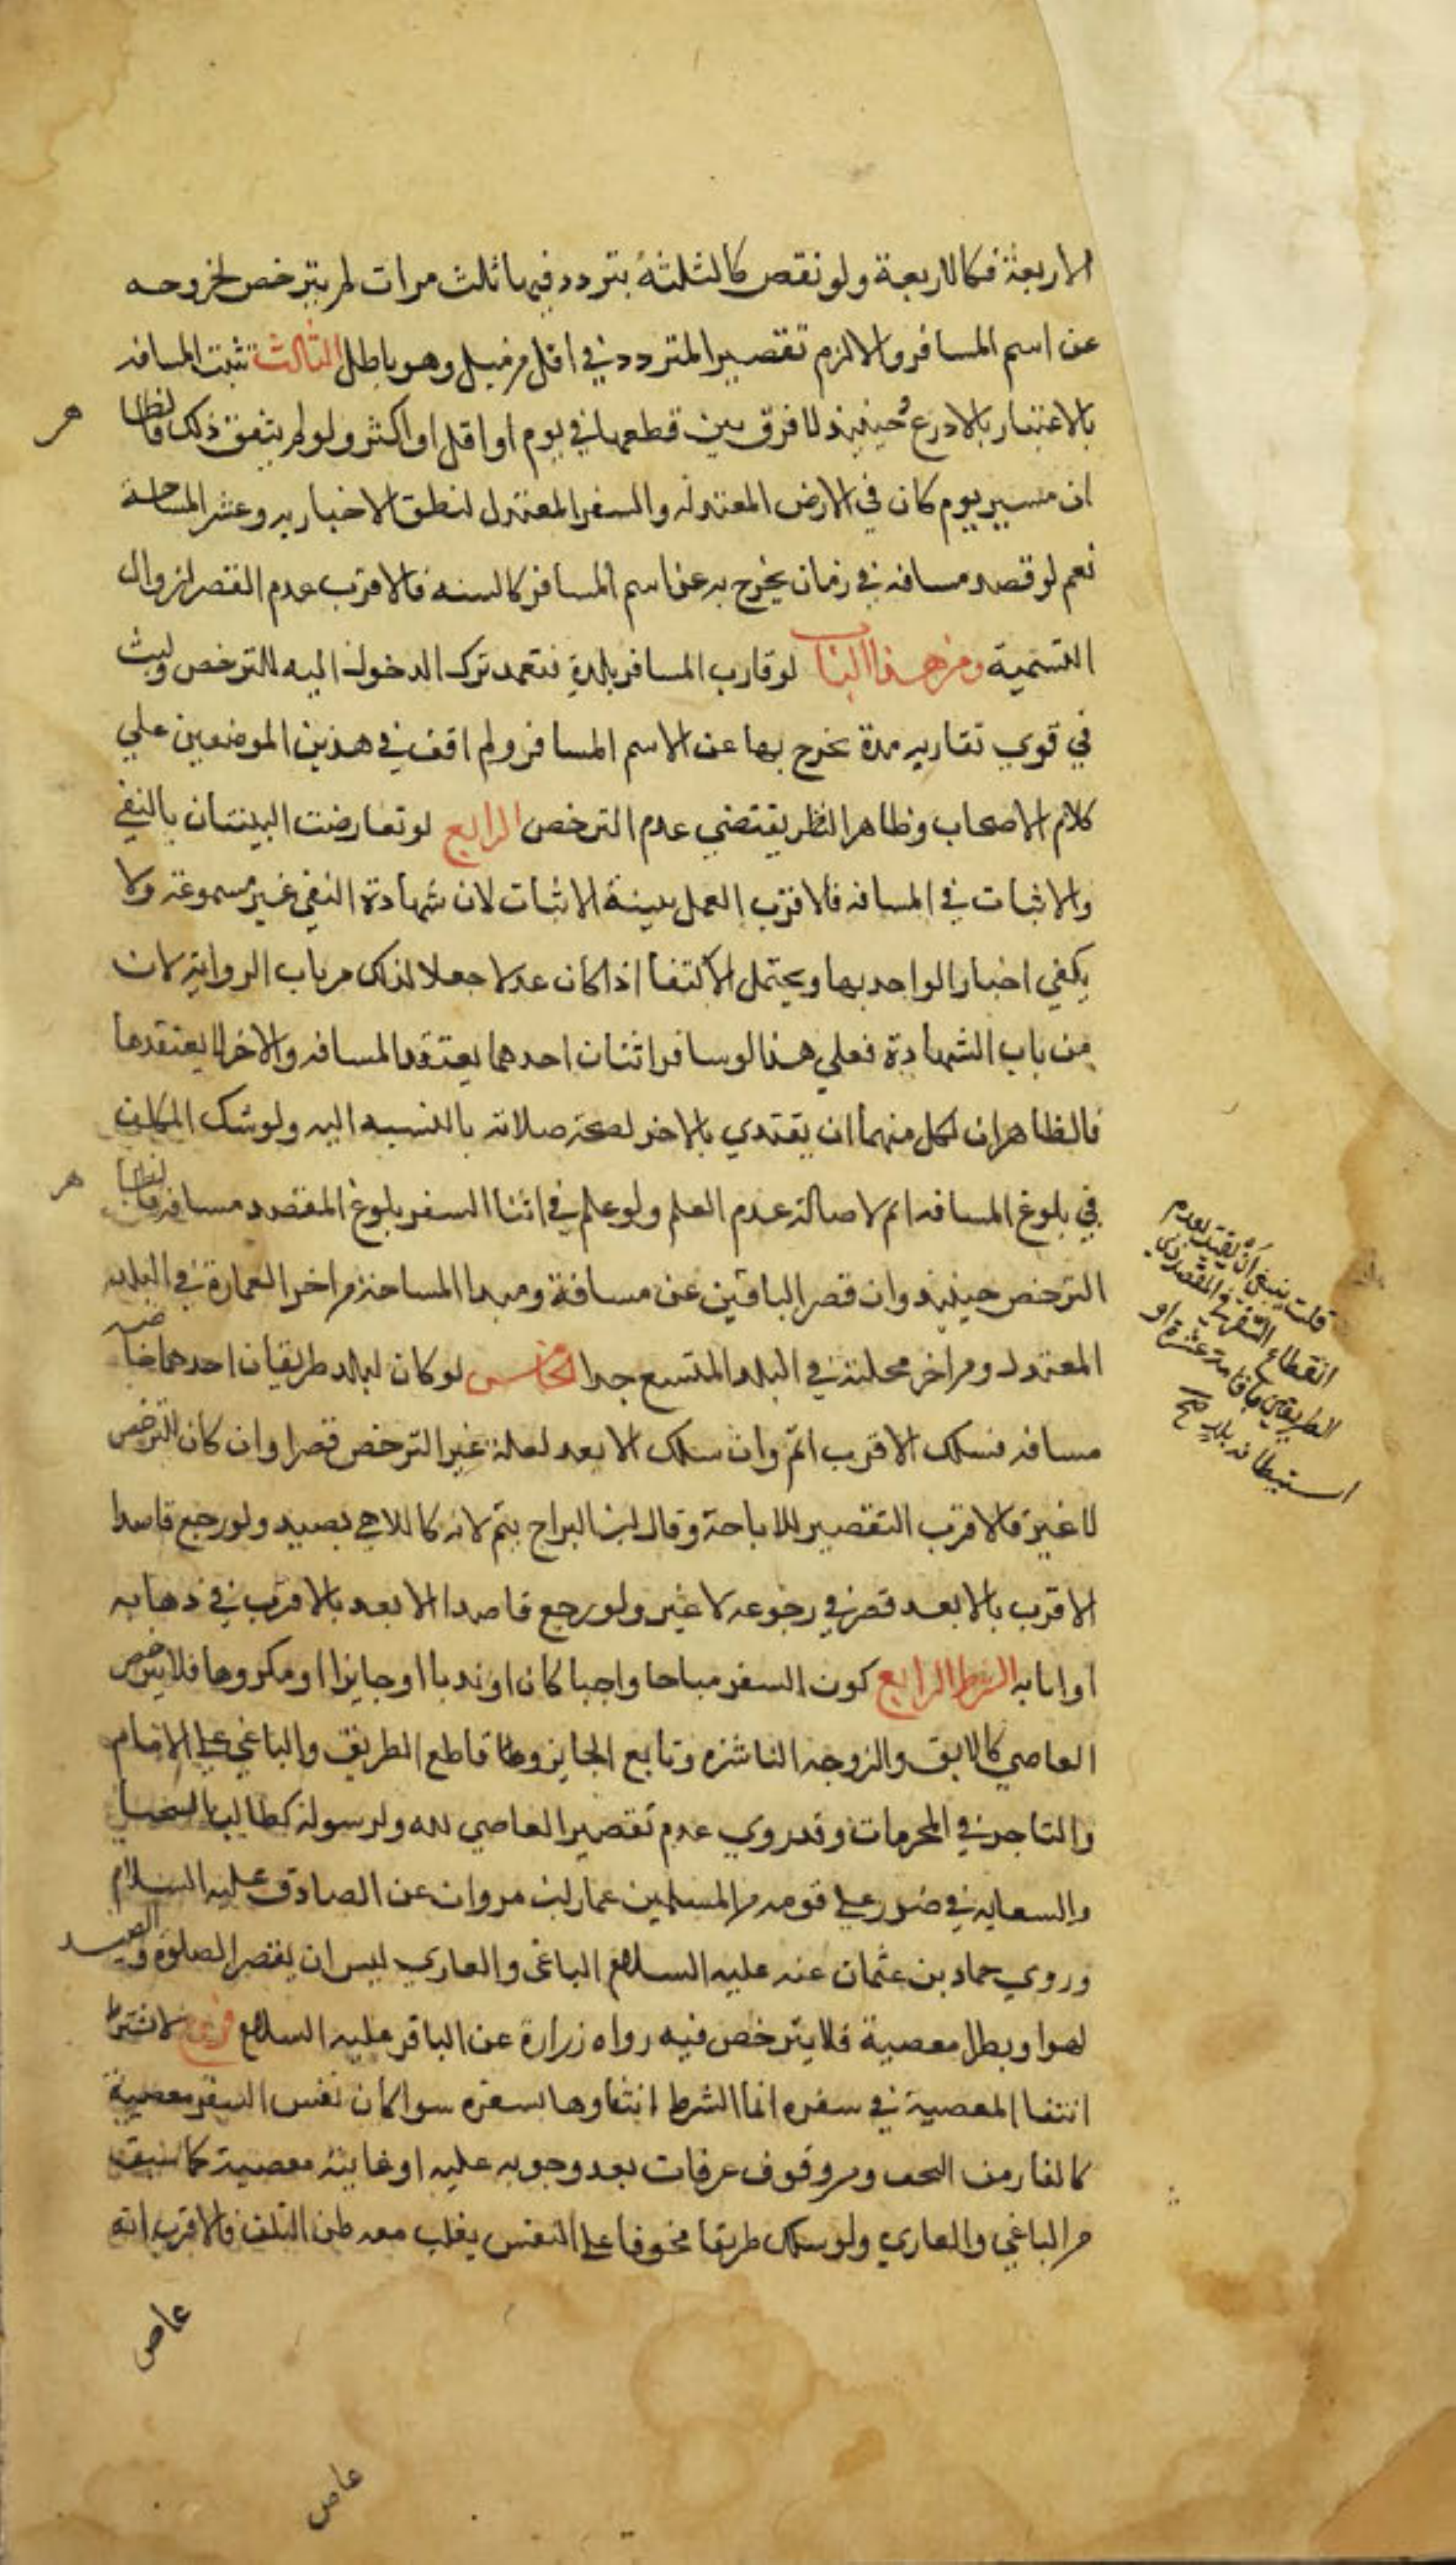 الاربعة فكالاربعة ولو نقص كالثلثة بتردد فيها ثلث مرات لم يترخص لخروجه
عن اسم المسافر والا لزم تقصير المتردد في اقل من ميل وهو باطل الثالث تثبت المسافه
بالاعتبار بالاذرع وحينئذ لا فرق بين قطعها في يوم او اقل او اكثر ولو لم يتفق ذلك فالظا
هر
ان مسير يوم كان في الارض المعتدله والسفر المعتدل لنطق الاخبار به وعسر المساحة
نعم لو قصد مسافه في زمان يخرج به عن اسم المسافر كالسنه فالاقرب عدم القصر لزوال
التسمية ومن هذا الباب لو قارب المسافر بلده فتعمد ترك الدخول اليه للترخص ولبث
في قوي تقاربه مدة يخرج بها عن الاسم المسافر ولم اقف في هذين الموضعين علي
كلام الاصحاب وظاهر النظر يقتضي عدم الترخص الرابع لو تعارضت البينتان بالنفي
والاثبات في المسافه فالاقرب العمل ببينة الاثبات لان شهادة النفي غير مسموعه ولا
يكفي اخبار الواحد بها ويحتمل الاكتفا اذا كان عدلا جعلا لذلك من باب الروايه لا
من باب الشهادة فعلي هذا لو سافر اثنان احدهما يعتقد المسافه والاخر لا يعتقدها
فالظاهر ان لكل منهما ان يقتدي بالاخر لصحة صلاته بالنسبه اليه ولو شك المكلف
في بلوغ المسافه اتم لاصالة عدم العلم ولو علم في اثنا السفر بلوغ المقصد مسافه فالظا
هر
الترخص حينئذ وان قصر الباقين عن مسافة ومبدا المساحة من اخر العمارة في البلد
المعتدل ومن اخر محلته في البلد المتسع جدا الخامس لو كان لبلد طريقان احدهما خاصه
مسافه فسلك الاقرب اتم وان سلك الابعد لعلة غير الترخص قصر وان كان للترخص
لا غير فالاقرب التقصير للاباحة وقال ابن البراج يتم لانه كاللاهي بصيد ولو رجع قاصدا
الاقرب بالابعد قصر في رجوعه لا غير ولو رجع قاصدا الابعد بالاقرب في ذهابه
او ايابه الشرط الرابع كون السفر مباحا واجبا كان او ندبا او جايزا او مكروها فلا يترخص
العاصي كالابق والزوجه الناشزه وتابع الجاير وقاطع الطريق والباغي علي الامام
والتاجر في المحرمات وقد روي عدم تقصير العاصي لله ولرسوله كطالب الشحنا
والسعايه في ضرر علي قوم من المسلمين عمار بن مروان عن الصادق عليه السلام
وروي حماد بن عثمان عنه عليه السلام الباغى والعاري ليس ان يقصر الصلوة والصيد
لهوا وبطرا معصية فلا يترخص فيه رواه زرارة عن الباقر عليه السلام فرع لا نشترط
انتفا المعصية في سفره انما الشرط انتفاوها بسفره سوا كان نفس السفر معصية
كالفار من الزحف ومن وقوف عرفات بعد وجوبه عليه او غايته معصية كما سبق
من الباغي والعاري ولو سلك طريقا مخوفا علي النفس يغلب معه ظن التلف فالاقرب انه
عاص
عاص
قلت ينبغي ان يقيد بعدم
انقطاع السفر في المقصد
الطريقين باقامة عشرة او
استيطانه بلد صح